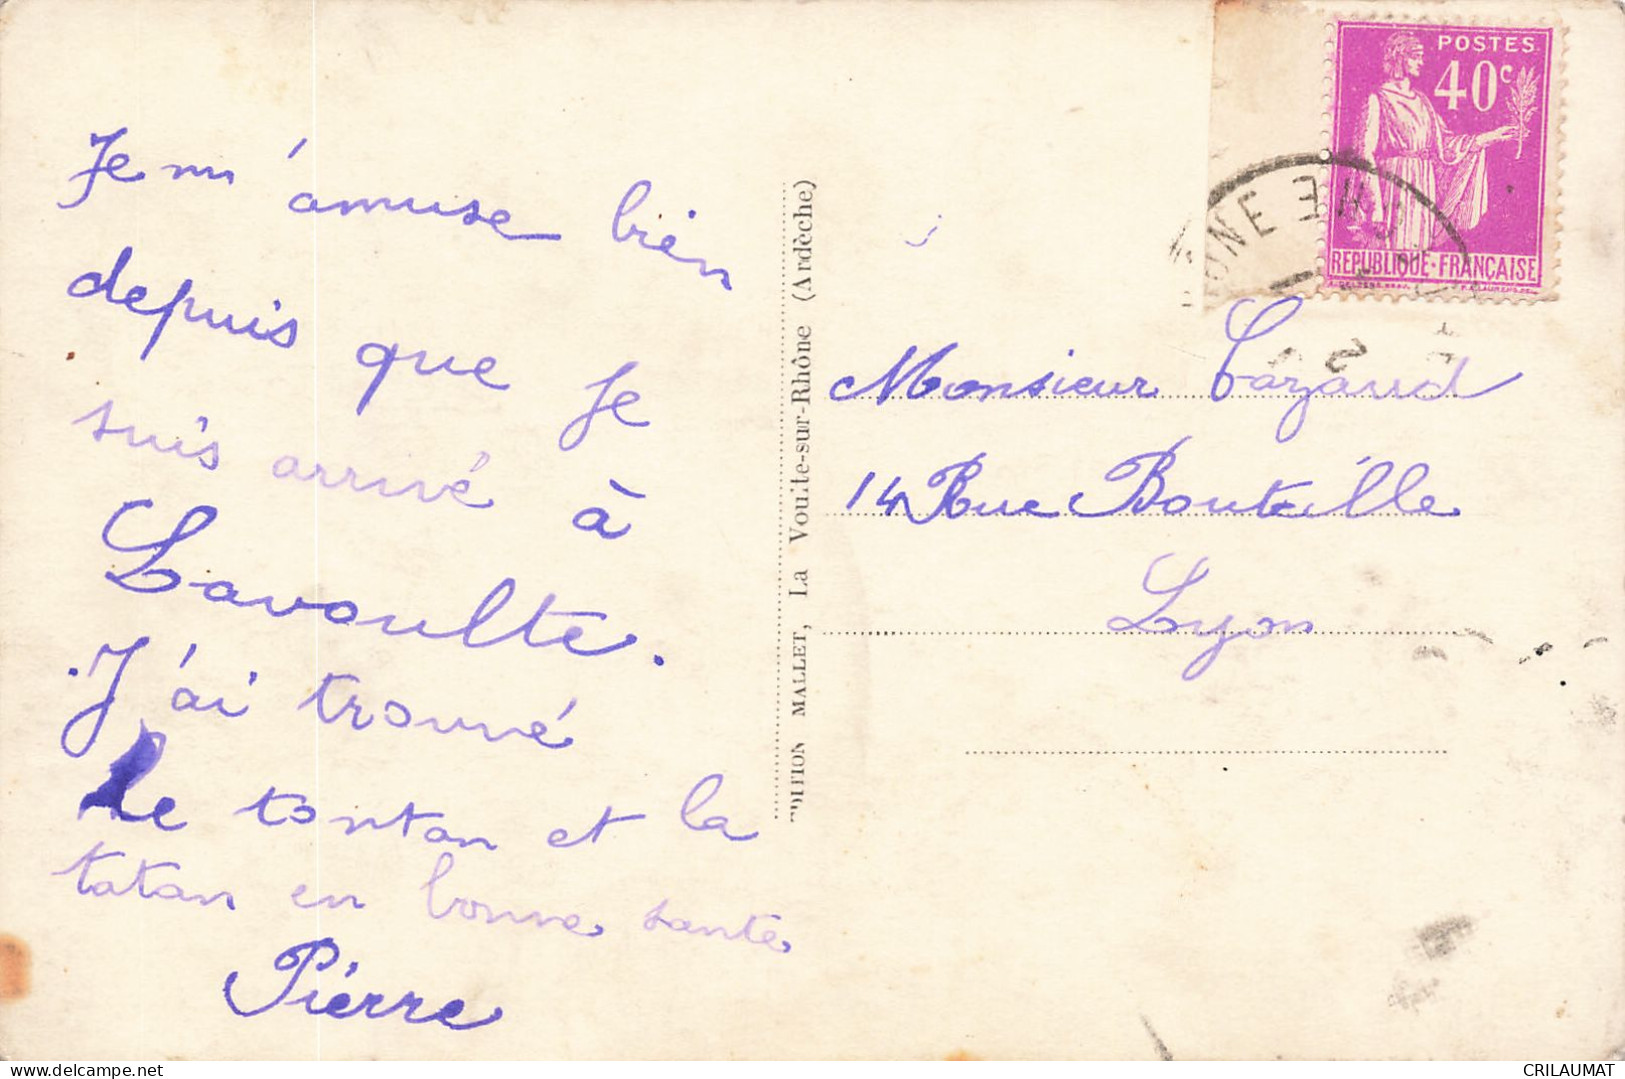 Je m'amuse bien
depuis que Je
suis arrivé à
Lavoulte.
J'ai trouvé
le tonton et la
tatan en bonne santé
Pierre
EDITION MALLET, La Voulte-sur-Rhône (Ardèche)
POSTES
40c
REPUBLIQUE-FRANÇAISE
Monsieur Cazaud
14 Rue Bouteille
Lyon
www.delcampe.net
CRILAUMAT